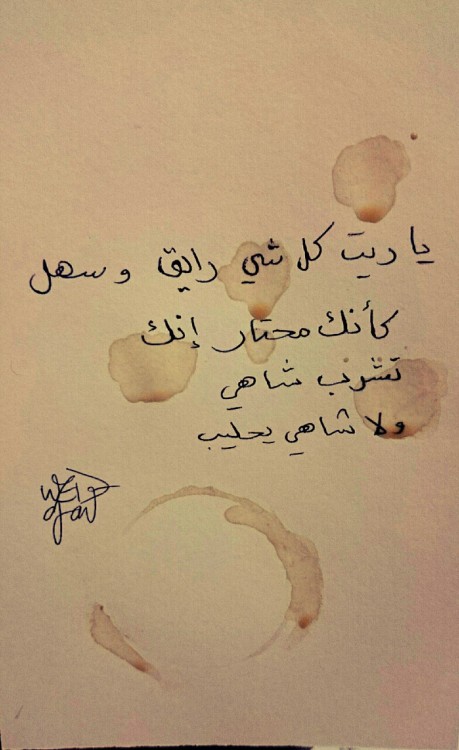 يا ريت كل شي رايق وسهل
كأنك محتار إنك
تشرب شاهي
ولا شاهي بحليب